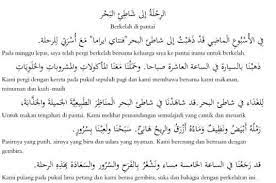 الرِّحْلَةُ إِلَى شَاطِئِ البَحْرِ
Berkelah di pantai
فِي الْأُسْبُوعِ الْمَاضِي قَدْ ذَهَبْتُ إِلَى شَاطِئِ الْبَحْرِ "فنتاي ايراما" مَعَ أُسْرَتِي لِلرِّحْلَةِ.
Pada minggu lepas, saya telah pergi berkelah bersama keluarga saya ke pantai irama untuk berkelah.
ذَهَبْنَا بِالسَّيَارَةِ فِي السَّاعَةِ العَاشِرَةِ صَبَاحًا. وَحَمَلْنَا مَعَنَا الْمَأْكُولَاتِ وَالْمَشْرُوبَاتِ وَالْحَلَوِيَاتِ
Kami pergi dengan kereta pada pukul sepuluh pagi dan kami membawa bersama kami makanan,
minuman dan kuih-muih
لِهَذِهِ الرِّحْلَةِ. قَدْ شَاهَدْنَا فِي شَاطِئِ الْبَحْرِ الْمَنَاظِرَ الطَّبِيعِيَّةَ الْجَمِيلَةَ وَالْجَذَّابَةَ،
Untuk berkelah. Kami telah melihat di pantai, pemandangan semulajadi yang cantik dan menarik.
رَمْلُهُ أَبْيَضُ وَنَظِيفٌ وَمَاءُهُ أَزْرَقُ وَالرِّيحُ هَادِئٌ. وَنَحْنُ نَسْبَحُ وَلَعِبْنَا بِسُرُورٍ.
Pasirnya yang putih, airnya yang biru dan udara yang nyaman. Kami berenang dan bermain dengan
gembira.
قَدْ رَجَعْنَا فِي السَّاعَةِ الْخَامِسَةِ مَسَاءً وَنَشْعُرُ بِالْفَرَحِ وَالسُّرُورِ وَالسَّعَادَةِ بِهَذِهِ الرِّحْلَةِ.
Kami pulang pada pukul lima petang dan kami berasa gembira, suka dan bahagia dengan perkelahan ini.